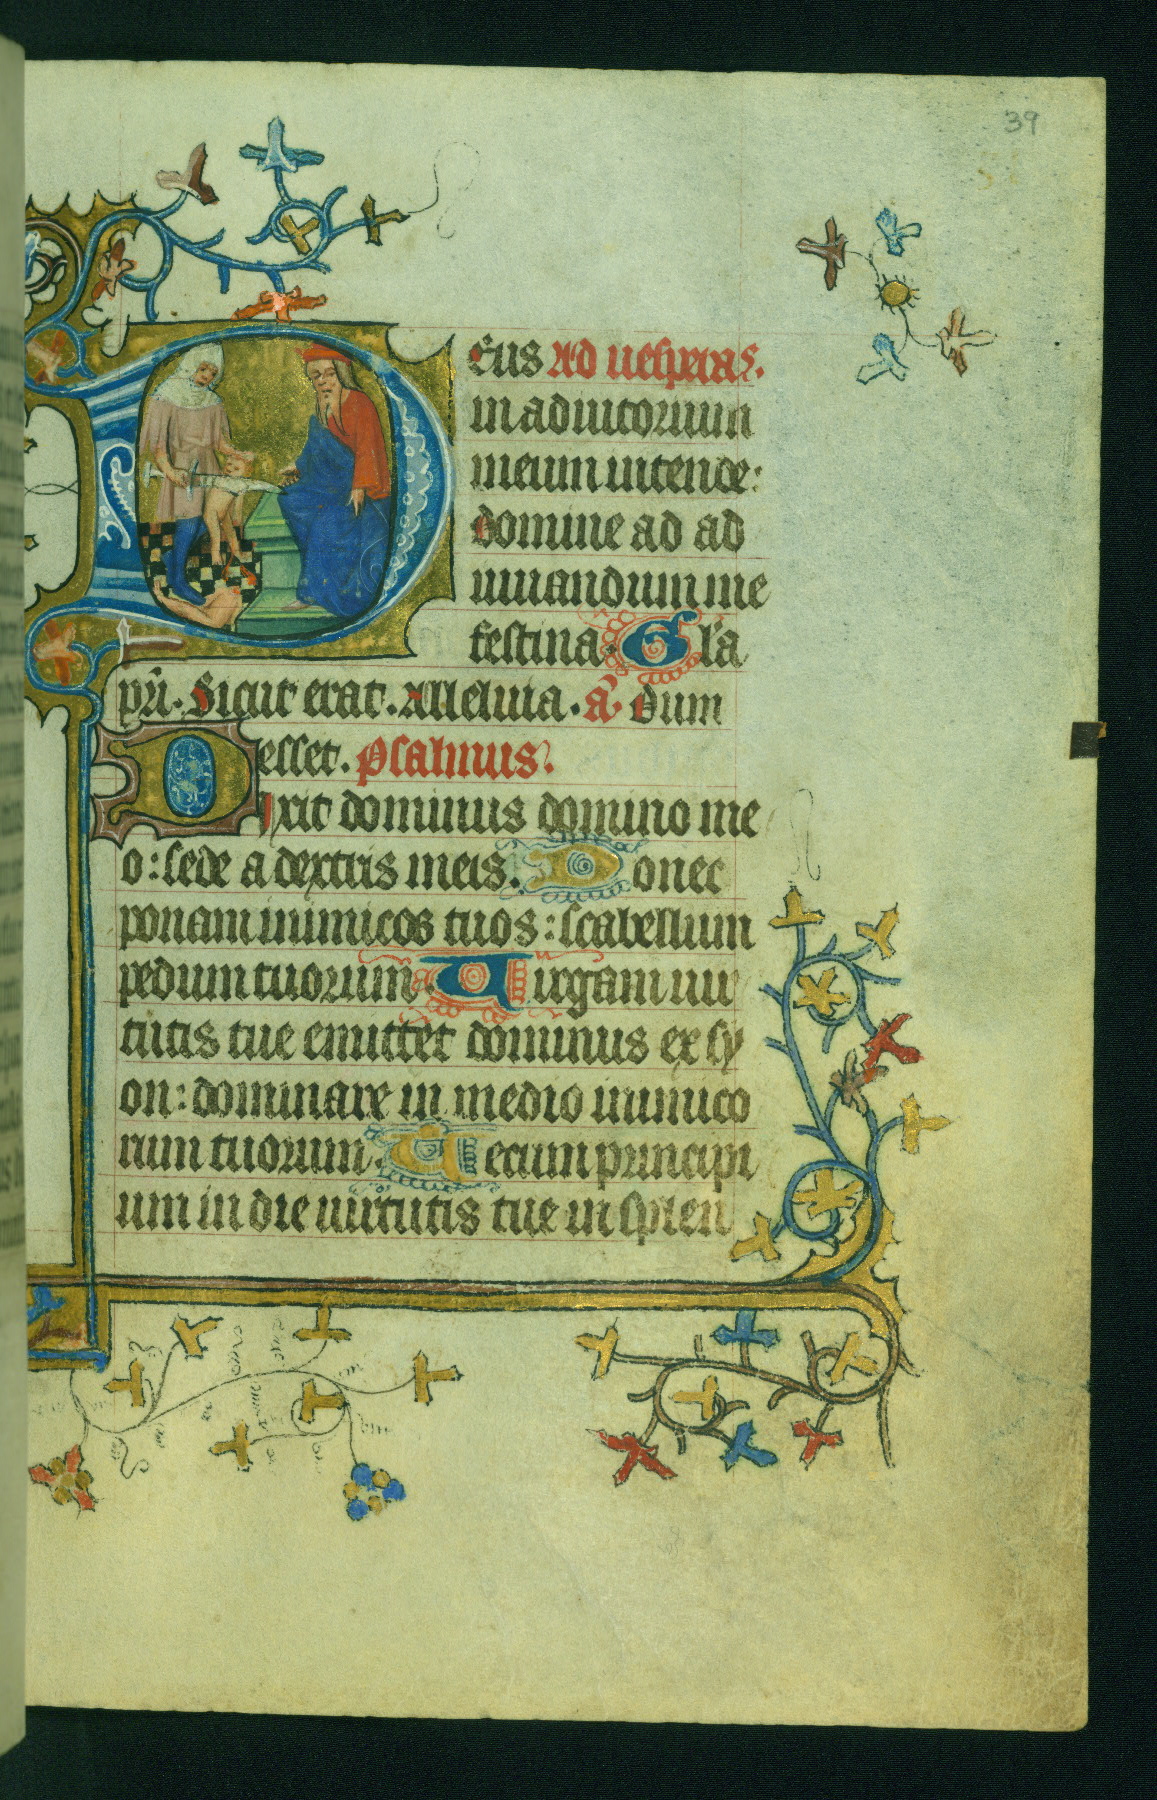 39
Deus Ad uesperas.
in adiutorium
meum intende:
domine ad ad
iuuandum me
festina. Gl'a
pri. Sicut erat. Alleluia. a. dum
esset. Psalmus.
Dixit dominus domino me
o: sede a dextris meis. Donec
ponam inimicos tuos: scabellum
pedum tuorum. Uirgam uir
tutis tue emittet dominus ex sy
on: dominare in medio inimico
rum tuorum. Tecum principi
um in die uirtutis tue in splen